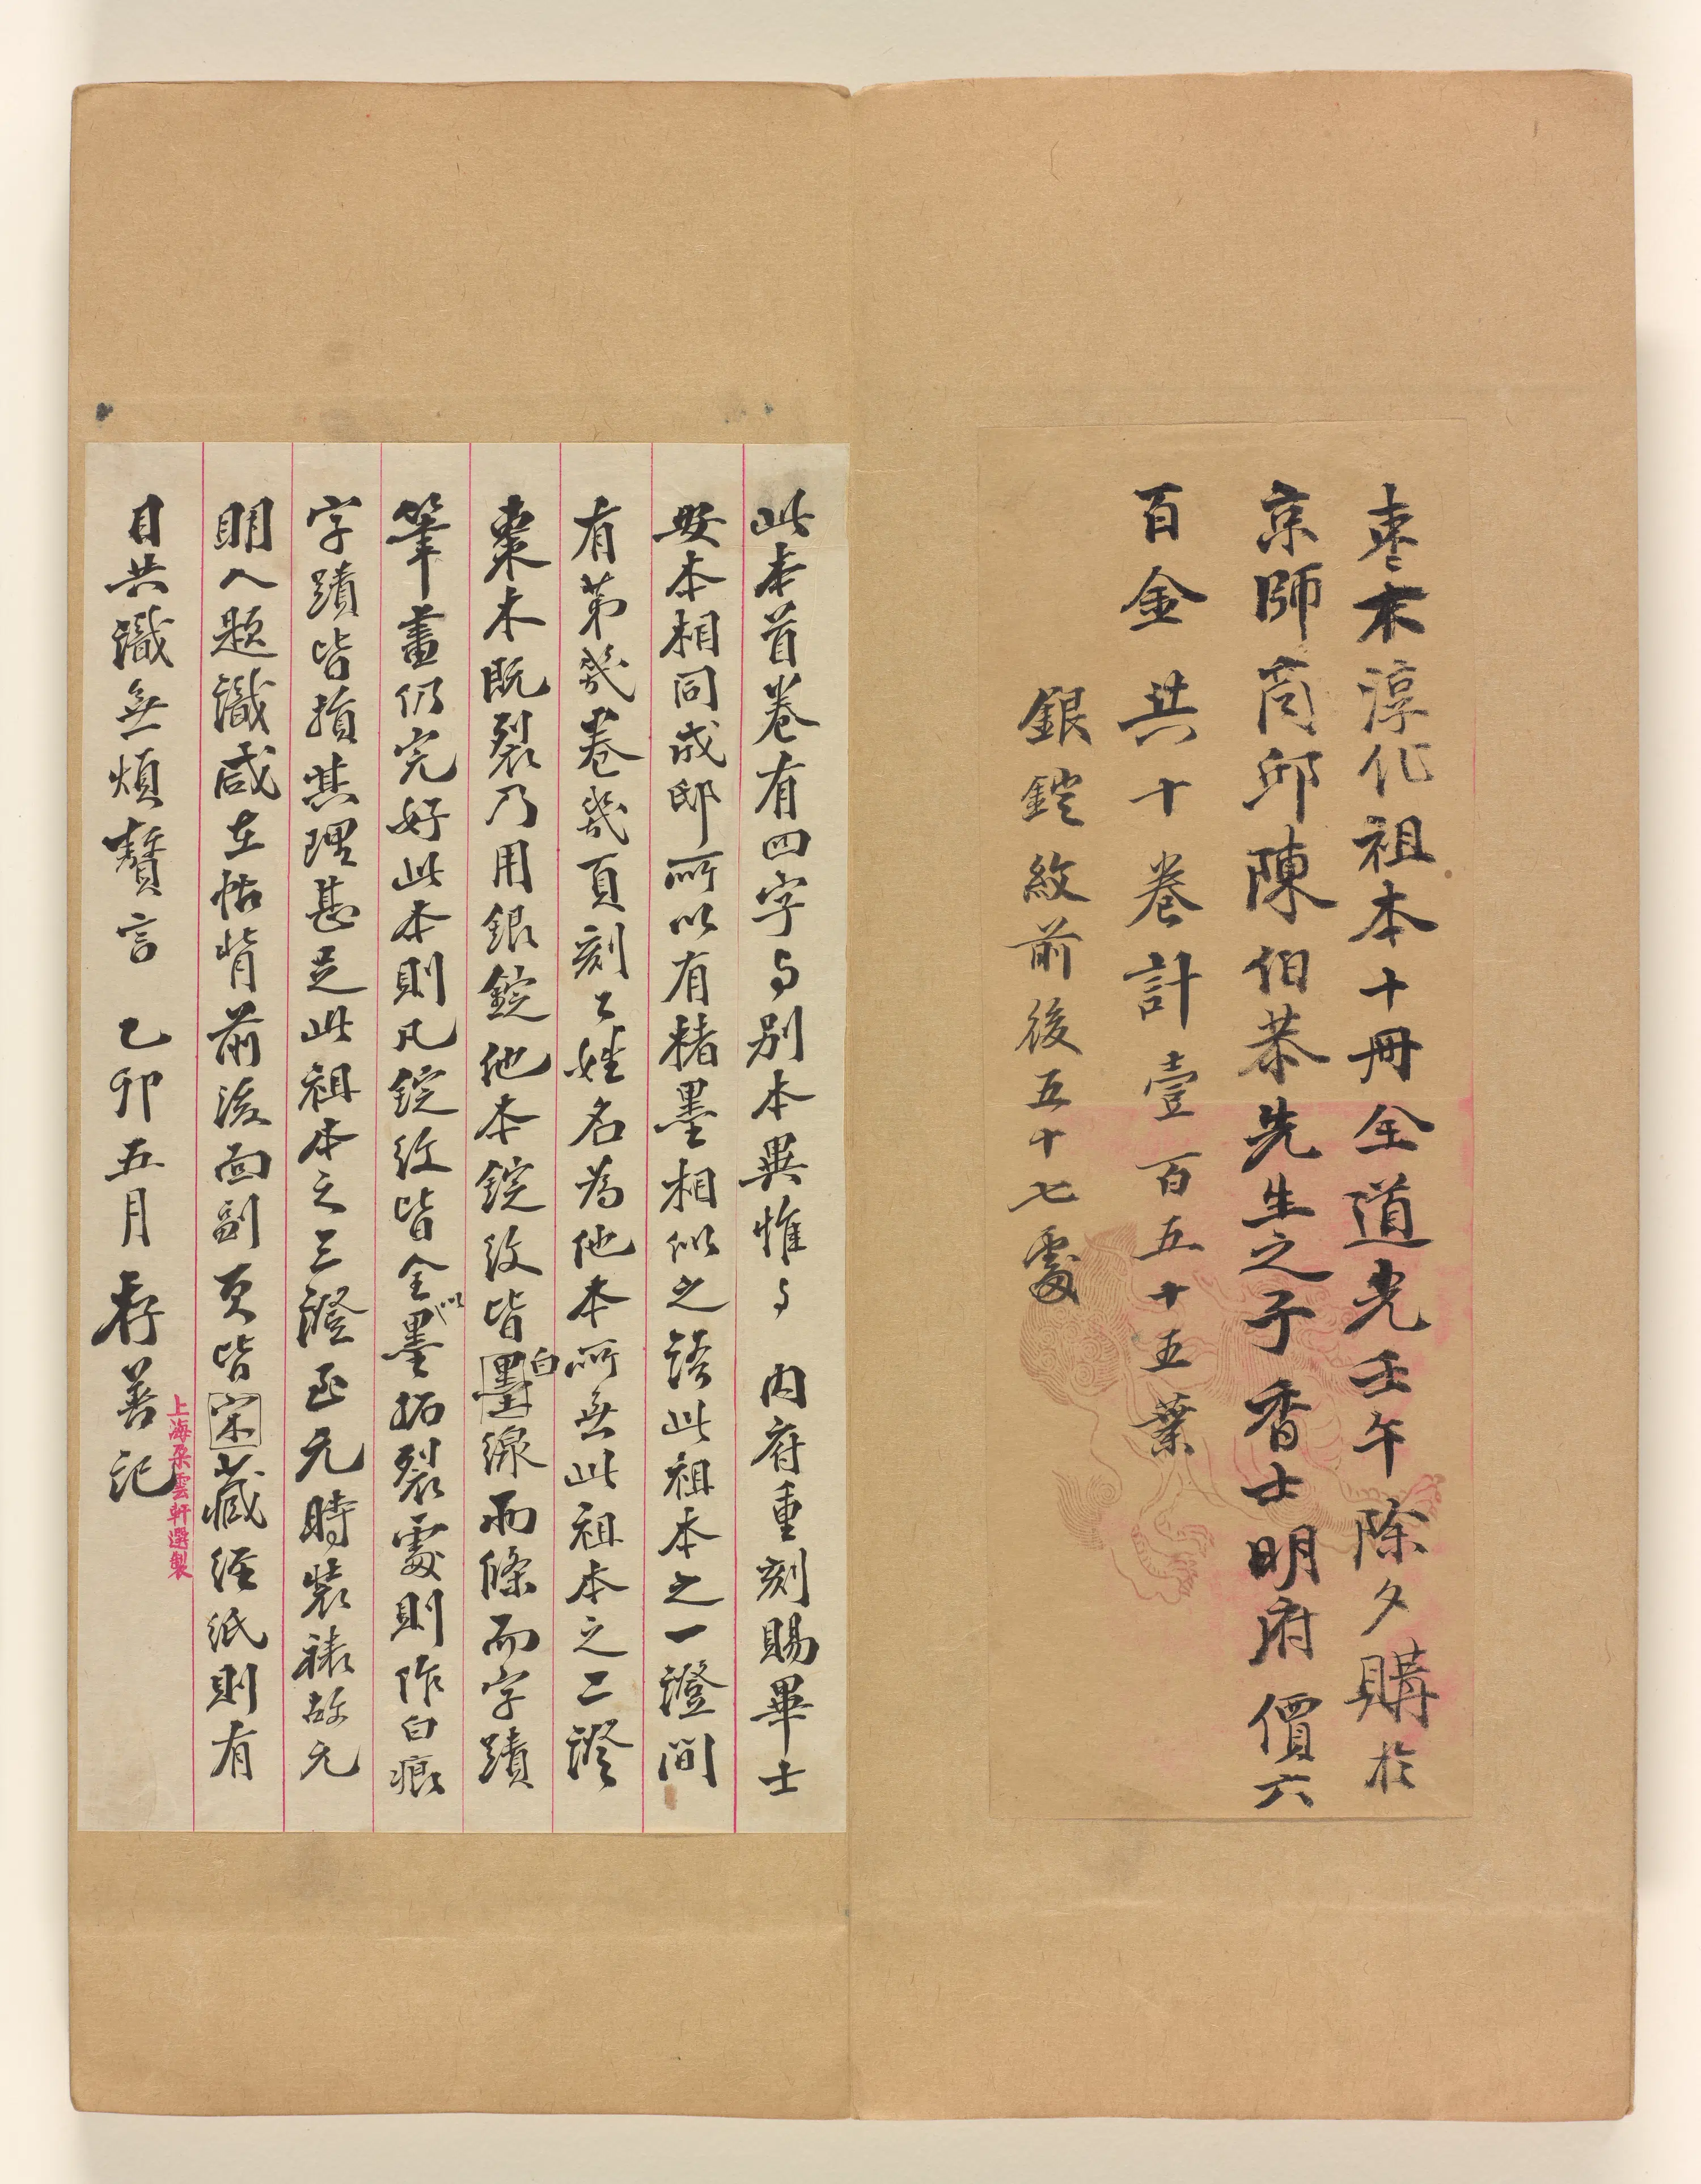 棗木淳化祖本十冊全道光壬午除夕購於
京師商邱陳伯恭先生之子香士明府價六
百金共十卷計壹百五十五葉
銀鋌紋前後五十七處
此本首卷有四字与别本異惟与 内府重刻賜畢士
安本相同成邸所以有楮墨相似之語此祖本之一證間
有第幾卷幾頁刻工姓名為他本所無此祖本之二證
棗木既裂乃用銀錠他本錠紋皆墨白線兩條而字蹟
筆畫仍完好此本則凡錠紋皆全以墨拓裂處則作白痕
字蹟皆損其理甚足此祖本之三證至元時裝裱故元
明人題識咸在帖背前後面副頁皆宋藏經紙則有
目共識無煩贅言 乙卯五月 存善記
上海朵雲軒選製